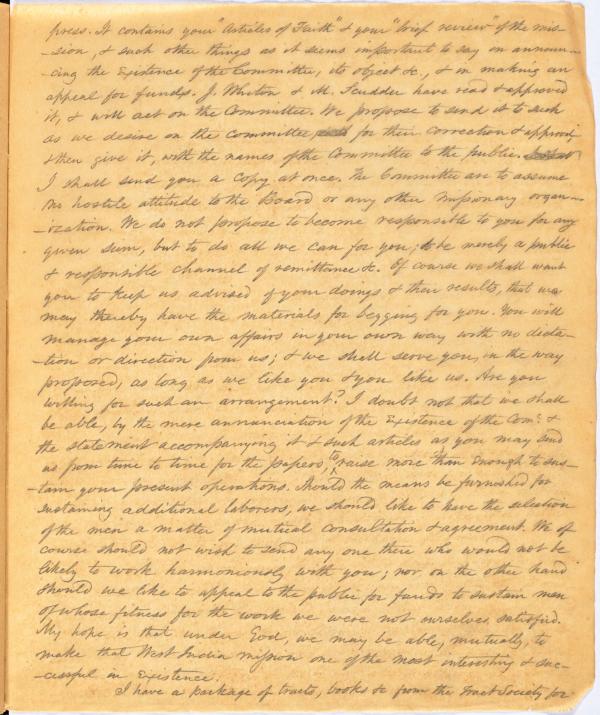 press. It contains your "Articles of Faith" & your "brief review" of the mis-
-sion, & such other things as it seems important to say in announ-
-cing the existence of the Committee, its object &c., & in making an
appeal for funds. J. Whiton & M. Scudder have read & approved
it, & will act on the Committee. We propose to send it to such
as we desire on the committee for their correction & approval,
& then give it, with the names of the Committee to the public.
I shall send you a copy at once. The Committee are to assume
no hostile attitude to the Board or any other missionary organ-
-ization. We do not propose to become responsible to you for any
given sum, but to do all we can for you; to be merely a public
& responsible channel of remittance &c. Of course we shall want
you to keep us advised of your doings & their results, that we
may thereby have the materials for begging for you. You will
manage your own affairs in your own way with no dicta-
-tion or direction from us; & we shall serve you, in the way
proposed, as long as we like you & you like us. Are you
willing for such an arrangement? I doubt not that we shall
be able, by the mere annunciation of the existence of the Com: &
the statement accompanying it & such articles as you may send
us from time to time for the papers, to raise more than enough to sus-
-tain your present operations. Should the means be furnished for
sustaining additional laborers, we should like to have the selection
of the men a matter of mutual consultation & agreement. We of
course should not wish to send any one there who would not be
likely to work harmoniously with you; nor on the other hand
should we like to appeal to the public for funds to sustain men
of whose fitness for the work we were not ourselves satisfied.
My hope is that under God, we may be able, mutually, to
make that West India mission one of the most interesting & suc-
-cessful in existence.
I have a package of tracts, books &c from the Tract Society for